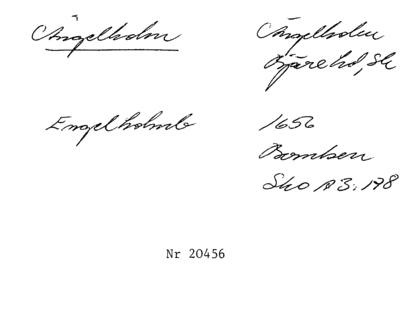 Ängelholm
Ängelholm
Bjäre hd, Sk
Engelholmb
1656
Bomben
Sko A 3: 178
Nr 20456